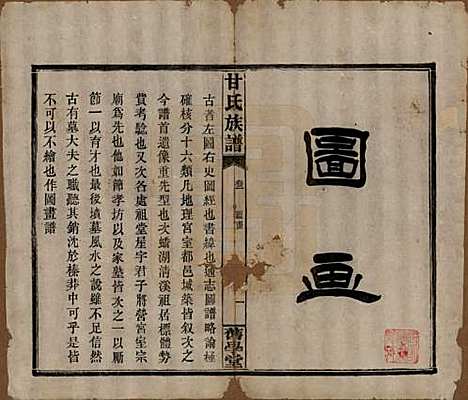 圖画
甘氏族譜
卷
圖畫
一
舊學堂
古者左圖右史圖經也書緯也通志圖譜略論極
確核分十六類凡地理宮室都邑城築皆叙次之
今譜首遺像重先型也次蟠湖清溪祖居標體勢
費考騐也又次各處祖堂屋宇君子將營宮室宗
廟為先也他如節孝坊以及家塾皆次之一以勵
節一以育才也最後墳墓風水之說雖不足信然
古有墓大夫之職聽其銷沈於榛莽中可乎是又
不可以不繪也作圖畫譜